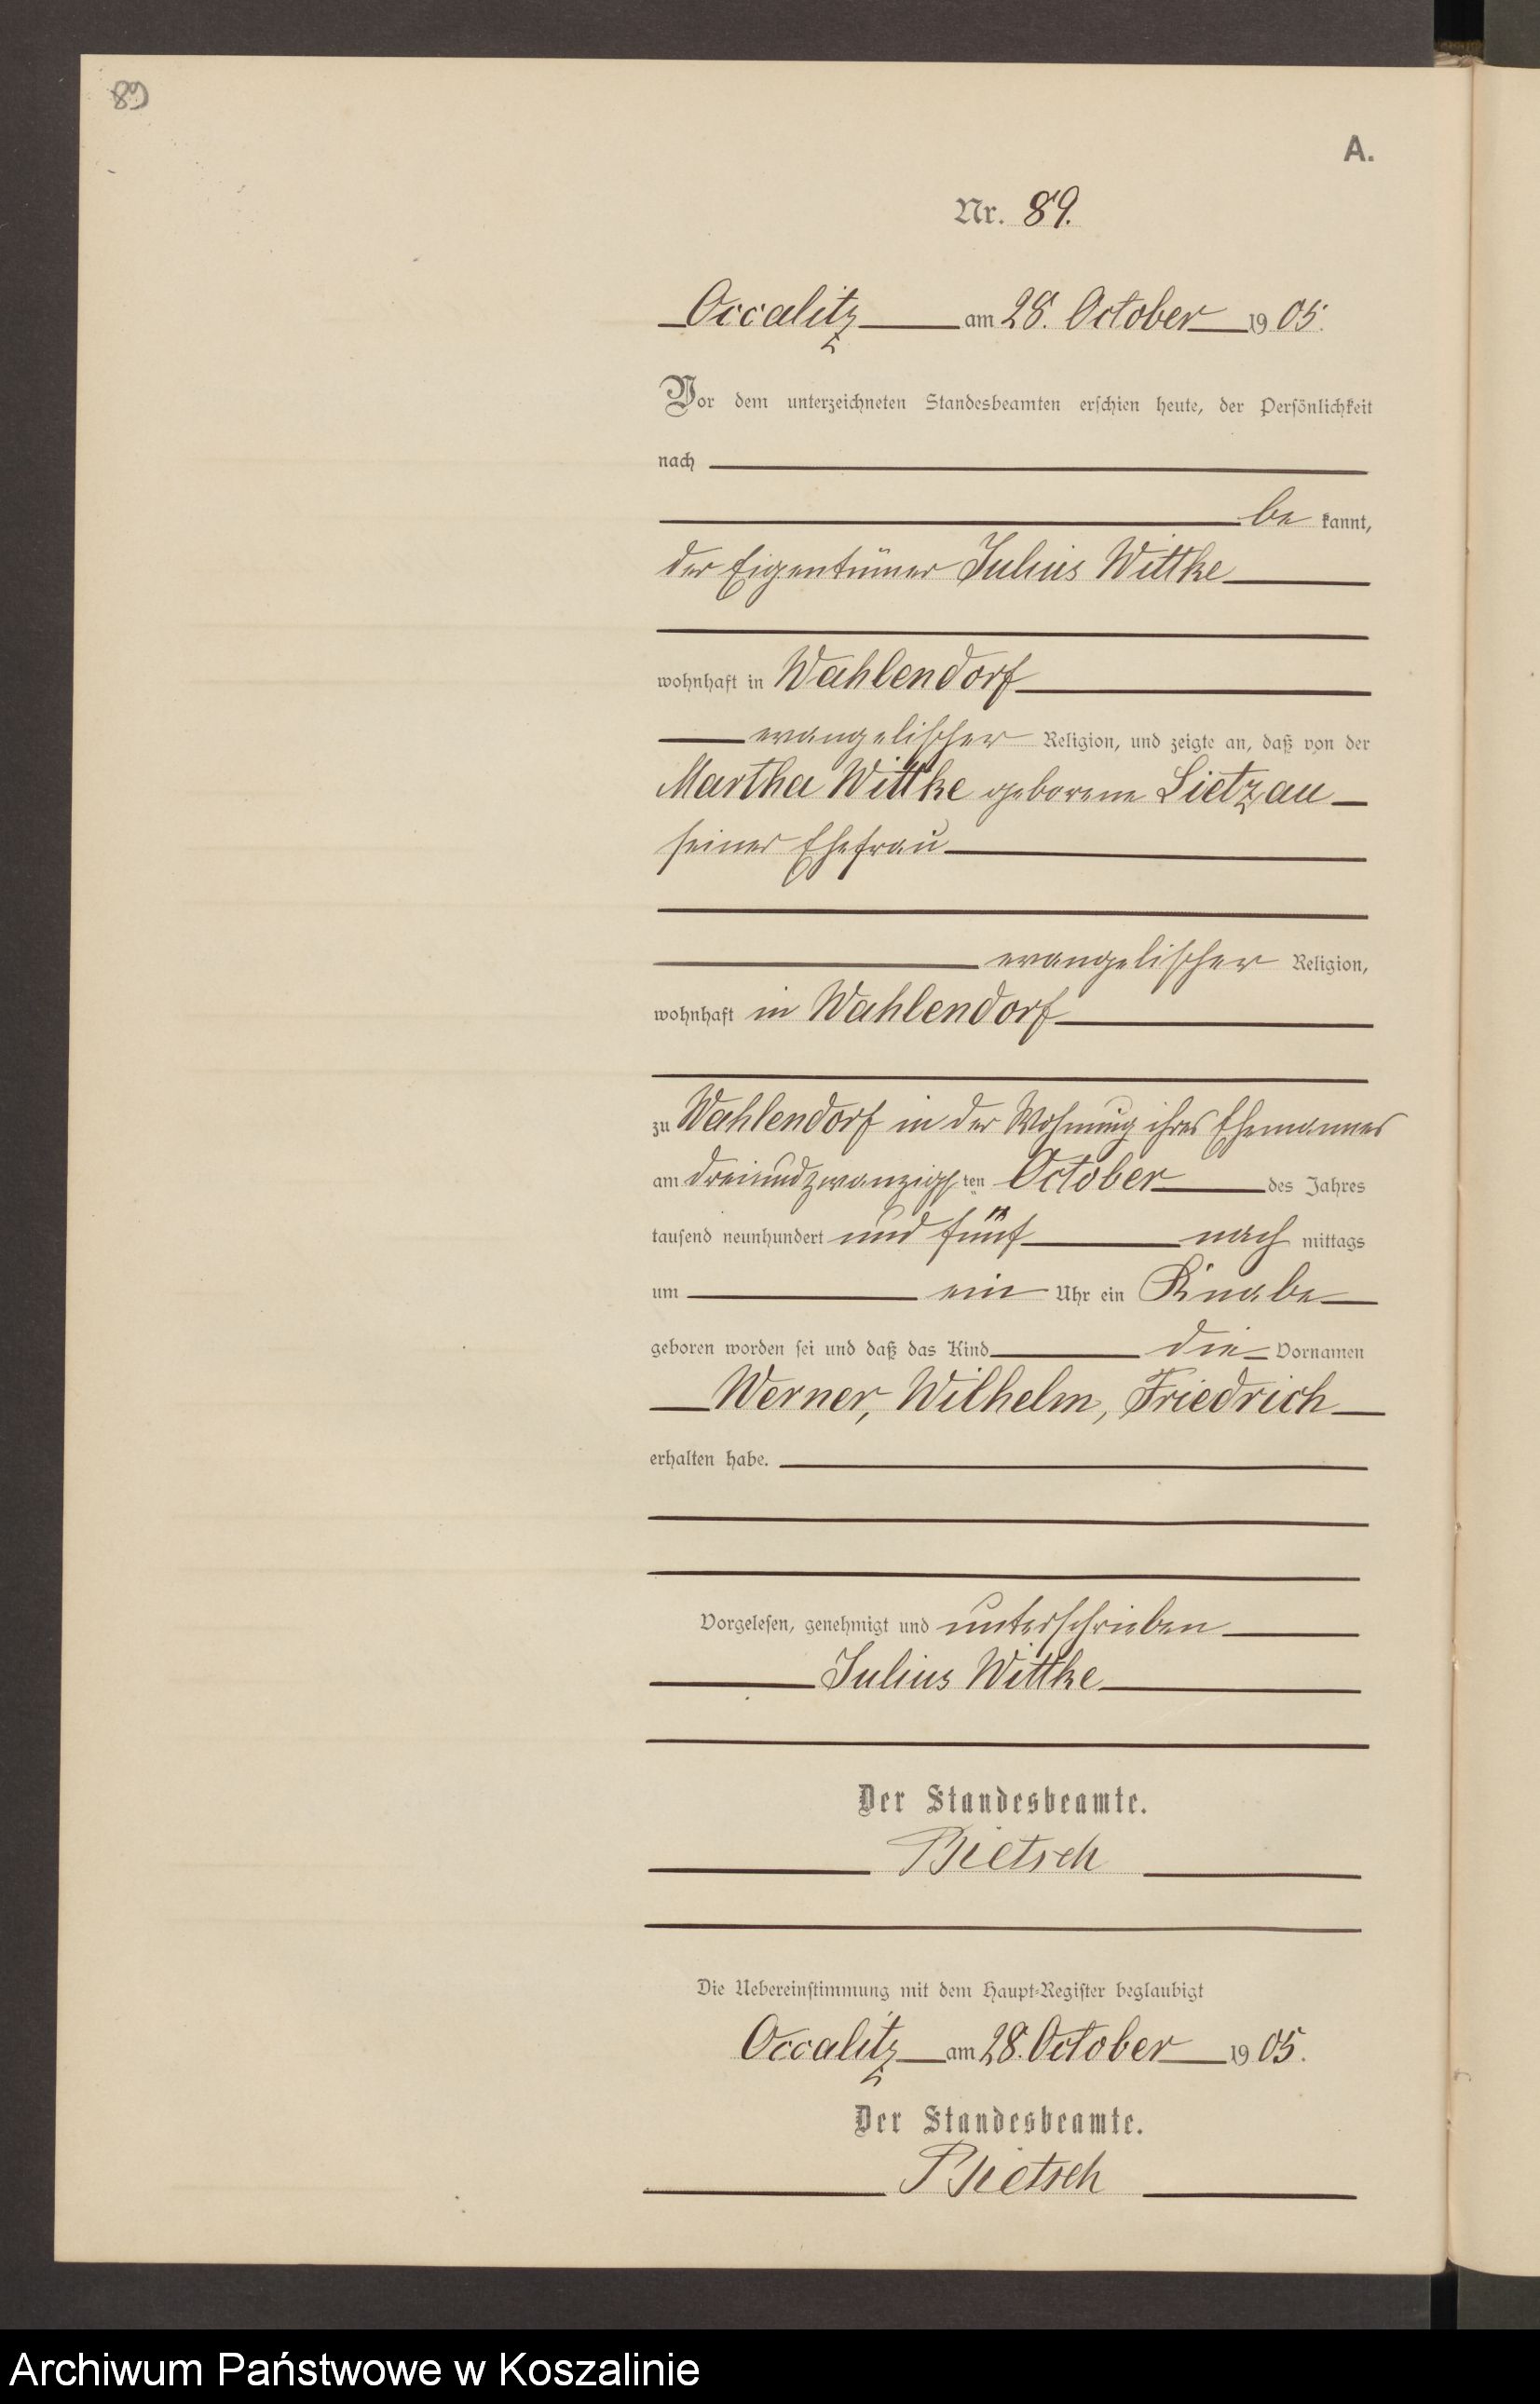 89
A.
Nr. 89.
Occalitz am 28. October 1905.
Vor dem unterzeichneten Standesbeamten erschien heute, der Persönlichkeit
nach
be kannt,
der Eigentümer Julius Wittke
wohnhaft in Wahlendorf
evangelischer Religion, und zeigte an, daß von der
Martha Wittke geborene Lietzau
seiner Ehefrau
evangelischer Religion,
wohnhaft in Wahlendorf
zu Wahlendorf in der Wohnung ihres Ehemannes
am dreiundzwanzigsten October des Jahres
tausend neunhundert und fünf nach mittags
um ein Uhr ein Knabe
geboren worden sei und daß das Kind die Vornamen
Werner, Wilhelm, Friedrich
erhalten habe.
Vorgelesen, genehmigt und unterschrieben
Julius Wittke
Der Standesbeamte.
Bietsch
Die Uebereinstimmung mit dem Haupt-Register beglaubigt
Occalitz am 28. October 1905.
Der Standesbeamte.
Bietsch
Archiwum Państwowe w Koszalinie